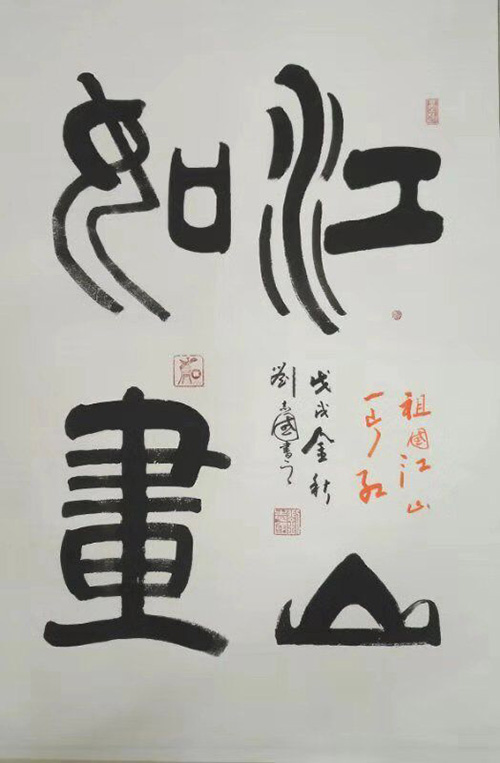 江山
如畫
祖國江山
一片红
戊戌金秋
劉志國書